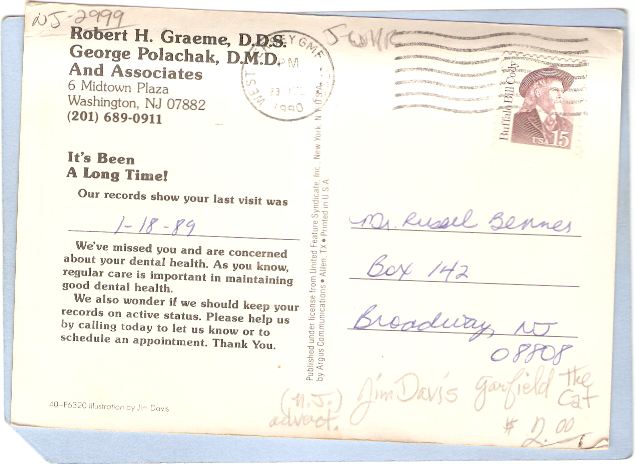 NJ-2999
Robert H. Graeme, D.D.S.
George Polachak, D.M.D.
And Associates
6 Midtown Plaza
Washington, NJ 07882
(201) 689-0911
It's Been
A Long Time!
Our records show your last visit was
1-18-89
We've missed you and are concerned
about your dental health. As you know,
regular care is important in maintaining
good dental health.
We also wonder if we should keep your
records on active status. Please help us
by calling today to let us know or to
schedule an appointment. Thank You.
40-F6320 illustration by Jim Davis
Published under license from United Feature Syndicate, Inc., New York, N.Y.
by Argus Communications • Allen, TX • Printed in U.S.A.
PM
1990
Buffalo Bill Cody
USA 15
Mr. Russel Bennes
Box 142
Broadway, NJ
08808
(N.J.) Jim Davis Garfield The
advect. Cat
$ 2.00